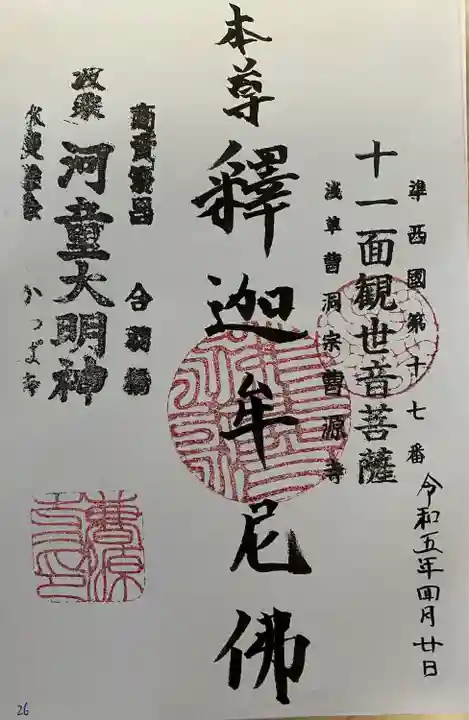 準西國第十七番
令和五年四月廿日
十一面観世音菩薩
浅草曹洞宗曹源寺
本尊
釋迦牟尼佛
商賣繁昌
合羽橋
波乗
河童大明神
かっぱ寺
曹源
26